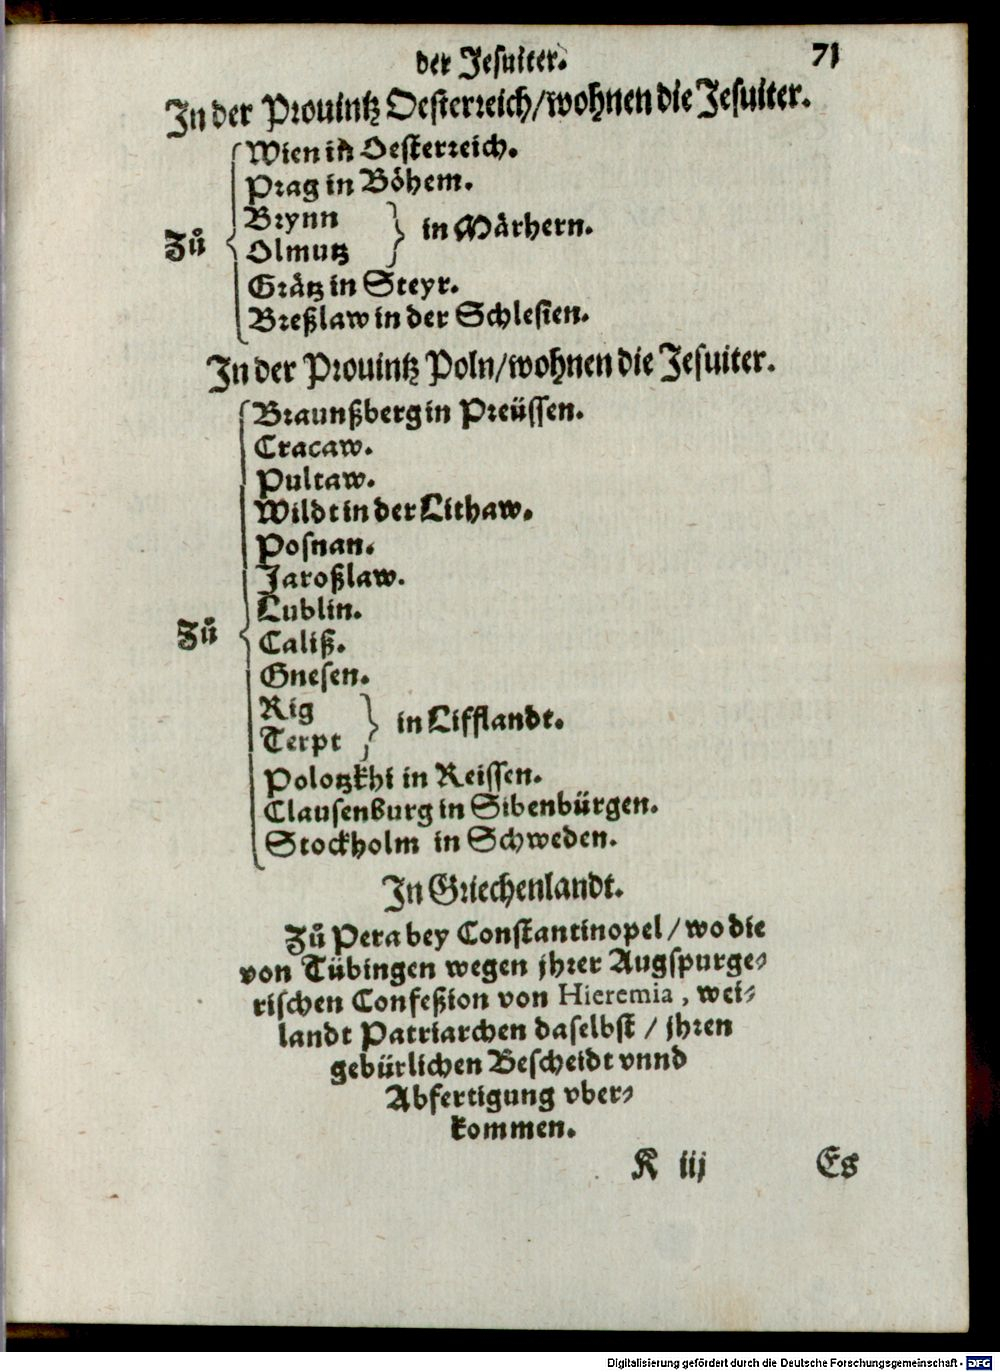 der Jesuiter. 71
In der Prouintz Oesterreich/wohnen die Jesuiter.
Wien in Oesterreich.
Prag in Böhem.
Brynn
Olmutz
in Märhern.
Zů
Grätz in Steyr.
Breßlaw in der Schlesien.
In der Prouintz Poln/wohnen die Jesuiter.
Braunßberg in Preüssen.
Cracaw.
Pultaw.
Wildt in der Lithaw.
Posnan.
Jaroßlaw.
Lublin.
Zů
Caliß.
Gnesen.
Rig
Terpt
in Lifflandt.
Polotzkhi in Reissen.
Clausenburg in Sibenbürgen.
Stockholm in Schweden.
In Griechenlandt.
Zů Pera bey Constantinopel / wo die
von Tübingen wegen jhrer Augspurge-
rischen Confeßion von Hieremia, wei-
landt Patriarchen daselbst / jhren
gebürlichen Bescheidt vnnd
Abfertigung vber-
kommen.
K iij Es
Digitalisierung gefördert durch die Deutsche Forschungsgemeinschaft - DFG